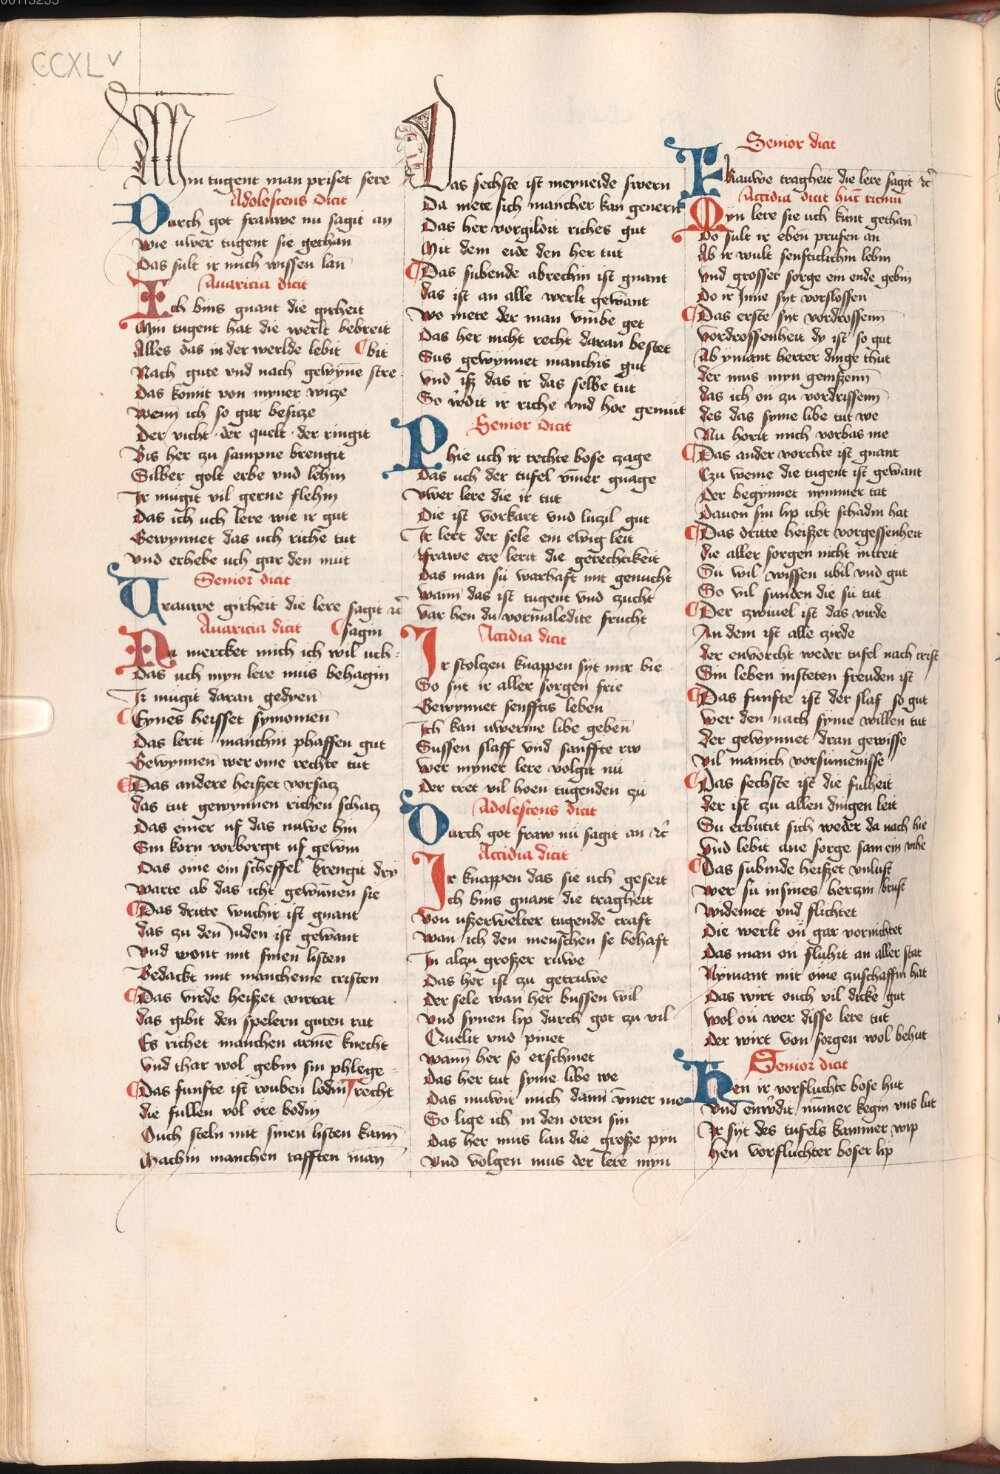 00113255
CCXLv
Min tugent man priset sere
Adolescens dicit
Durch got frauwe nu sagit an
Wie uwer tugent sie gethan
Das sult ir mich wissen lan
Auaricia dicit
Ich bins gnant die girheit
Min tugent hat die werlt bebreit
Alles das in der werlde lebit bit
Nach gute vnd nach gewyne stre
Das komit von myner witze
Wenn ich so gar besitze
Der vicht der quelt der ringit
Bis her zu sampne brengit
Silber golt erbe vnd lehin
Ir mugit vil gerne flehin
Das ich uch lere wie ir gut
Gewynnet das uch riche tut
Vnd erhebe uch gar den mut
Senior dicit
Frauwe girheit die lere sagit
Auaricia dicit sagin
Nu mercket mich ich wil uch
Das uch myn lere mus behagin
Ir mugit daran gedyen
Eynes heisset symonien
Das lerit manchin phaffen gut
Gewynnen wer ome rechte tut
Das andere heiszet vorsatz
das tut gewynnen richen schatz
Das einer uf das nuwe hin
Sin korn vorborgit uf gewin
Das ome ein scheffel brengit dry
Warte ab das icht gewinnen sie
Das dritte wuchir ist gnant
das zu den Juden ist gewant
Vnd wont mit sinen listen
Bedackt mit mancheme cristen
Das virde heiszet virtat
das gibit den spelern guten rat
Es richet manchen arme knecht
Vnd thar wol gebin sin phlege
Das funfte ist rouben lodin recht
die fullen vol ore bodin
Ouch steln mit sinen listen kann
Machin manchen tafften man
Das sechste ist meyneide swern
Da mete sich mancher kan genern
Das her vorgildit riches gut
Mit dem eide den her tut
Das subende abrechin ist gnant
das ist an alle werlt gewant
Wo mete der man vmbe get
Das her nicht recht daran bestet
Sus gewynnet manchis gut
Vnd isz das ir das selbe tut
So wdit ir riche vnd hoe gemut
Senior dicit
Phie uch ir rechte bose zage
Das uch der tufel vmer gnage
Vwer lere die ir tut
Die ist vorkart vnd luczil gut
Ir lert der sele ein ewig leit
Frawe ere lerit die gerechtikeit
das man si warhaft mit genucht
Wann das ist tugent vnd zucht
Var hen du vormaledite frucht
Accidia dicit
Ir stolzen knappen syt mir bie
So syt ir aller sorgen frie
Gewynnet senfftis leben
Ich kan uwerme libe geben
Sussen slaff vnd sanffte rw
Wer myner lere volgit nu
Der tret vil hoen tugenden zu
Adolescens dicit
Durch got fraw nu sagit an
Accidia dicit
Ir knappen das sie uch geseit
Ich bins gnant die tragheit
Von uszerwelter tugende craft
Wan ich den menschen se behaft
In alzu groszer ruwe
Das her ist zu getruwe
Der sele wan her bussen wil
Vnd synen lip durch got zu vil
Quelit vnd pinet
Wann her so erschinet
Das her tut syme libe we
Das muwit mich dann vmer me
So lige ich in den oren sin
Das her mus lan die grosze pyn
Vnd volgen mus der lere myn
Senior dicit
Frauwe tragheit die lere sagit
Accidia dicit
Myn lere sie uch kunt gethan
Do sult ir eben prufen an
Ab ir wult senfticlichin lebin
Vnd grosser sorge ein ende gebin
Do ir Inne syt vorslossen
Das erste syt vordrossenn
Vordrossenheit dy ist so gut
Ab ymant herter dinge thut
der mus myn genisszenn
das ich on zu vordrissenn
des das syme libe tut we
Nu horit mich vorbas me
Das ander vorchte ist gnant
Czu weme die tugent ist gewant
Der begynnet nymmer tat
Dauon sin lip icht schadin hat
Das dritte heiszet vorgessenheit
die aller sorgen nicht intreit
Su wil wissen ubil vnd gut
So vil sunden die su tut
Der zwiuel ist das virde
An dem ist alle zirde
der envorcht weder tufel nach crist
Sin leben insteten freuden ist
Das funfte ist der slaf so gut
Wer den nach syme willen tut
Der gewynnet dran gewisse
Vil manich vorsumenisse
Das sechste ist die fulheit
der ist zu allen dingen leit
Su erbutit sich weder da nach hie
Vnd lebit ane sorge sam ein vihe
Das subinde heiszet vnlust
Wer su in sines herzin brust
Widemet vnd flichtet
Die werlt on gar vernichtet
Das man on fluhit an aller stat
Nymant mit ome zuschaffin hat
Das wirt ouch vil dicke gut
Wol on wer disse lere tut
Der wirt von sorgen wol behut
Senior dicit
Hen ir vorfluchte bose hut
Vnd enwdit nummer kegin vns lut
Ir syt des tufels kammer wip
Hen vorfluchter boser lip